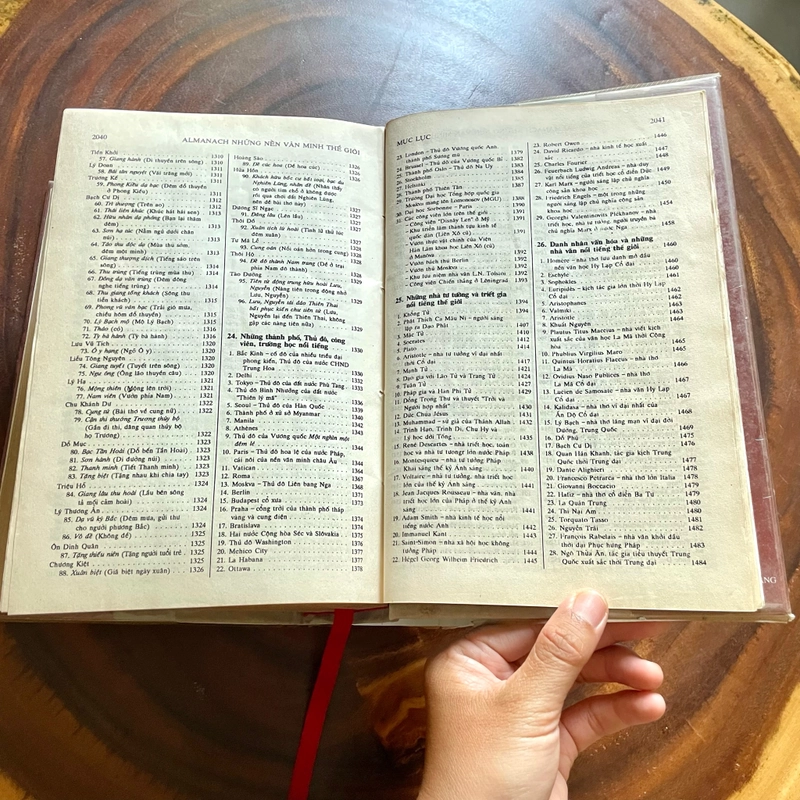 2040
ALMANACH NHỮNG NỀN VĂN MINH THẾ GIỚI
Tiền Khởi
57. Giang hành (Đi thuyền trên sông) 1310
Lý Đoan 1310
58. Bái tân nguyệt (Vái trăng mới) 1311
Trương Kế 1311
59. Phong Kiều dạ bạc (Đêm đỗ thuyền
ở Phong Kiều) 1311
Bạch Cư Dị 1312
60. Trì thượng (Trên ao) 1312
61. Thái liên khúc (Khúc hát hái sen) 1313
62. Hữu nhân dạ phỏng (Bạn lại thăm
đêm) 1313
63. Sơn hạ túc (Nằm ngủ dưới chân
núi) 1313
64. Tảo thu độc dạ (Mùa thu sớm,
đêm một mình) 1313
65. Giang thượng địch (Tiếng sáo trên
sông) 1314
66. Thu trùng (Tiếng trùng mùa thu) 1314
67. Đông dạ văn trùng (Đêm đông
nghe tiếng trùng) 1314
68. Thu giang tống khách (Sông thu
tiễn khách) 1315
69. Phong vũ vãn bạc (Trải gió mưa,
chiều hôm đỗ thuyền) 1315
70. Lý Bạch mộ (Mộ Lý Bạch) 1315
71. Thảo (cỏ) 1316
72. Tỳ bà hành (Tỳ bà hành) 1316
Lưu Vũ Tích 1320
73. Ô y hạng (Ngõ Ô y) 1320
Liễu Tông Nguyên 1320
74. Giang tuyết (Tuyết trên sông) 1320
75. Ngư ông (Ông lão thuyền câu) 1321
Lý Hạ 1321
76. Mộng thiên (Mộng lên trời) 1321
77. Nam viên (Vườn phía Nam) 1321
Chu Khánh Dư 1322
78. Cung từ (Bài thơ về cung nữ) 1322
79. Cận thí thướng Trương thủy bộ
(Gần đi thi, dâng quan thủy bộ
họ Trương) 1322
Đỗ Mục 1323
80. Bạc Tần Hoài (Đỗ bến Tần Hoài) 1323
81. Sơn hành (Đi đường núi) 1323
82. Thanh minh (Tiết Thanh minh) 1323
83. Tặng biệt (Tặng nhau khi chia tay) 1323
Triệu Hỗ 1324
84. Giang lâu thu hoài (Lầu bên sông
tả mối cảm hoài) 1324
Lý Thương Ẩn 1324
85. Dạ vũ ký Bắc (Đêm mưa, gửi thư
cho người phương Bắc) 1324
86. Vô đề (Không đề) 1325
Ôn Đình Quân 1325
87. Tặng thiếu niên (Tặng người tuổi trẻ) 1325
Chương Kiệt 1325
88. Xuân biệt (Giã biệt ngày xuân) 1326
Hoàng Sào 1326
89. Đề cúc hoa (Đề hoa cúc) 1326
Hứa Hồn 1326
90. Khách hữu bốc cư bất toại, bạc du
Nghiên Lũng, nhân đề (Nhân thấy
có người tìm chỗ ở không được
rồi qua chơi đất Nghiên Lũng,
nên đề bài thơ này)
Dương Sĩ Ngạc
91. Đăng lâu (Lên lầu)
Thôi Đồ
92. Xuân tịch lữ hoài (Tình lữ thứ lúc
đêm xuân)
Tư Mã Lễ
93. Cung oán (Nỗi oán hờn trong cung)
Thôi Hộ
94. Đề đô thành Nam trang (Đề ở trại
phía Nam đô thành)
Tào Đường
95. Tiên tử động trung hữu hoài Lưu,
Nguyễn (Nàng tiên trong động nhớ
Lưu, Nguyễn)
96. Lưu, Nguyễn tái đáo Thiên Thai
bất phục kiến chư tiên tử (Lưu,
Nguyễn lại đến Thiên Thai, không
gặp các nàng tiên nữa)
24. Những thành phố, Thủ đô, công
viên, trường học nổi tiếng 1330
1. Bắc Kinh – cố đô của nhiều triều đại
phong kiến, Thủ đô của nước CHND
Trung Hoa
2. Delhi
3. Tokyo – Thủ đô của đất nước Phù Tang
4. Thủ đô Bình Nhưỡng của đất nước
"Thiên lý mã"
5. Seoul – Thủ đô của Hàn Quốc 1339
6. Thành phố ở xứ sở Myanmar 1340
7. Manila 1342
8. Athènes 1343
9. Thủ đô của Vương quốc Một nghìn một
đêm lẻ 1344
10. Paris – Thủ đô hoa lệ của nước Pháp,
cái nôi của nền văn minh châu Âu 1344
11. Vatican 1357
12. Roma 1358
13. Moskva – Thủ đô Liên bang Nga 1360
14. Berlin 1361
15. Budapest cổ xưa 1363
16. Praha, cổng trời của thành phố tháp
vàng và cung điện 1364
17. Bratislava 1369
18. Hai nước Cộng hòa Séc và Slôvakia 1369
19. Thủ đô Washington 1370
20. Mehico City 1371
21. La Habana 1377
22. Ottawa 1378
MỤC LỤC
2041
23. London – Thủ đô Vương quốc Anh
thành phố sương mù 1379
24. Brussel – Thủ đô của Vương quốc Bỉ 1382
25. Thành phố Oslo – Thủ đô Na Uy 1383
26. Stockholm 1385
27. Helsinki 1387
28. Thành phố Thiên Tân 1387
29. Trường Đại học Tổng hợp quốc gia
Moskva mang tên Lomonosov (MGU) 1388
30. Đại học Sorbonne – Paris 1390
31. Các công viên lớn trên thế giới 1391
– Công viên "Disney Lan" ở Mỹ 1391
– Khu triển lãm thành tựu kinh tế
quốc dân (Liên Xô cũ) 1391
– Vườn thực vật chính của Viện
Hàn Lâm khoa học Liên Xô (cũ)
ở Moskva 1392
– Vườn bách thú Berlin 1392
– Vườn thú Moskva 1392
– Khu lưu niệm nhà văn L.N. Tolxtoi 1392
– Công viên Chiến thắng ở Lêningrad 1393
25. Những nhà tư tưởng và triết gia
nổi tiếng thế giới 1394
1. Khổng Tử 1394
2. Phật Thích Ca Mâu Ni – người sáng
lập ra Đạo Phật 1407
3. Mặc Tử 1410
4. Socrates 1412
5. Plato
6. Aristotle – nhà tư tưởng vĩ đại nhất
thời cổ đại
7. Mạnh Tử
8. Đạo gia với Lão Tử và Trang Tử
9. Tuân Tử
10. Pháp gia và Hàn Phi Tử 1429
11. Đổng Trọng Thư và thuyết "Trời và
Người hợp nhất" 1430
12. Đức Chúa Jésus 1431
13. Mohammad – sứ giả của Thánh Allah 1432
14. Trình Hạo, Trình Di, Chu Hy và
Lý học đời Tống 1435
15. René Descartes – nhà triết học, toán
học và nhà tư tưởng lớn nước Pháp 1438
16. Montesquieu – nhà tư tưởng Pháp,
Khai sáng thế kỷ Ánh sáng 1440
17. Voltaire – nhà tư tưởng, nhà triết học
lớn của thế kỷ Ánh sáng 1440
18. Jean Jacques Rousseau – nhà văn, nhà
triết học lớn của Pháp ở thế kỷ Ánh
sáng 1441
19. Adam Smith – nhà kinh tế học nổi
tiếng nước Anh 1442
20. Immanuel Kant 1443
21. Saint-Simon – nhà xã hội học không
tưởng Pháp 1444
22. Hégel Georg Wilhelm Friedrich 1445
23. Robert Owen 1446
24. David Ricardo – nhà kinh tế học xuất
sắc
25. Charles Fourier
26. Feuerbach Ludwig Andreas – nhà duy
vật nổi tiếng của triết học cổ điển Đức 1449
27. Karl Marx – người sáng lập chủ nghĩa
cộng sản khoa học 1451
28. Friedrich Engels – một trong những
người sáng lập chủ nghĩa cộng sản
khoa học 1454
29. Georghi Valentinovits Plekhanov – nhà
triết học, nhà tư tưởng, người truyền bá
chủ nghĩa Marx ở nước Nga 1458
26. Danh nhân văn hóa và những
nhà văn nổi tiếng thế giới 1460
1. Homère – nhà thơ lưu danh mở đầu
nền văn học Hy Lạp Cổ đại 1460
2. Eschyle
3. Sophokles
4. Euripidès – kịch tác gia lớn thời Hy Lạp
Cổ đại 1462
5. Aristophanes 1463
6. Valmiki 1464
7. Aristotle 1464
8. Khuất Nguyên
9. Plautius Titus Marccus – nhà viết kịch
xuất sắc của văn học La Mã thời Cổ
đại 1466
10. Phublius Virgilius Maro
11. Quintus Horatius Flaccus – nhà thơ
La Mã
12. Ovidius Naso Publices – nhà thơ
La Mã Cổ đại 1467
13. Lucien de Samosate – nhà văn Hy Lạp
Cổ đại
14. Kalidasa – nhà thơ vĩ đại nhất của
Ấn Độ Cổ đại 1468
15. Lý Bạch – nhà thơ lãng mạn vĩ đại đời
Đường, Trung Quốc 1469
16. Đỗ Phủ 1475
17. Bạch Cư Dị 1476
18. Quan Hán Khanh, tác gia kịch Trung
Quốc thời Trung đại 1477
19. Dante Alighieri 1477
20. Francesco Petrarca – nhà thơ lớn Italia 1478
21. Giovanni Boccacio 1479
22. Hafiz – nhà thơ cổ điển Ba Tư 1479
23. La Quán Trung 1480
24. Thi Nại Am 1481
25. Torquato Tasso 1481
26. Nguyễn Trãi 1482
27. François Rabelais – nhà văn khởi đầu
thời đại Phục hưng Pháp 1483
28. Ngô Thừa Ân, tác giả tiểu thuyết Trung
Quốc xuất sắc thời Trung đại 1484